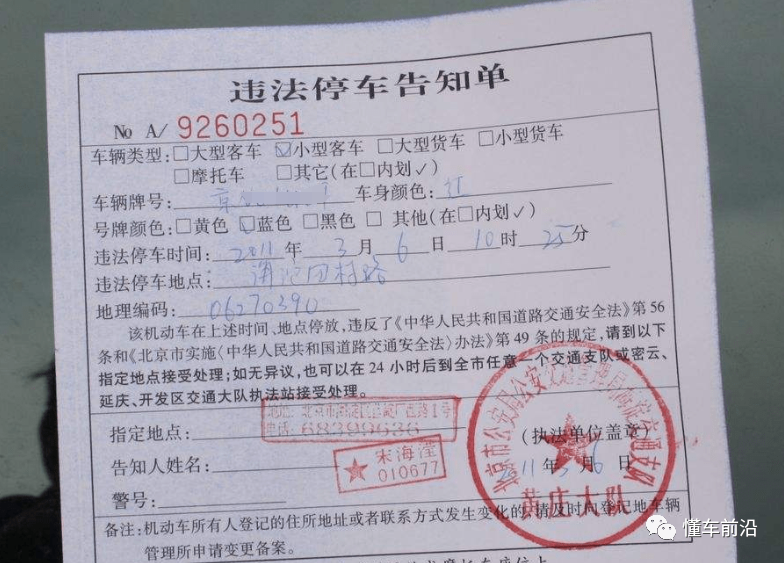 违法停车告知单
No A/ 9260251
车辆类型:□大型客车 ☑小型客车 □大型货车 □小型货车
□摩托车 □其它(在□内划✓)
车辆牌号: 京 车身颜色: 红
号牌颜色:□黄色 ☑蓝色 □黑色 □ 其他(在□内划✓)
违法停车时间: 2011 年 3 月 6 日 10 时 25 分
违法停车地点: 村路
地理编码: 06270390
该机动车在上述时间、地点停放,违反了《中华人民共和国道路交通安全法》第 56
条和《北京市实施〈中华人民共和国道路交通安全法〉办法》第 49 条的规定,请到以下
指定地点接受处理;如无异议,也可以在 24 小时后到全市任意一个交通支队或密云、
延庆、开发区交通大队执法站接受处理。
地址: 北京市海淀区 路1号
指定地点:
电话: 68399636
(执法单位盖章)
告知人姓名: 宋海滢
010677
2011 年 3 月 6 日
警号:
北京市公安局公安交通管理局海淀交通支队
黄庄大队
备注:机动车所有人登记的住所地址或者联系方式发生变化的,请及时向登记地车辆
管理所申请变更备案。
懂车前沿